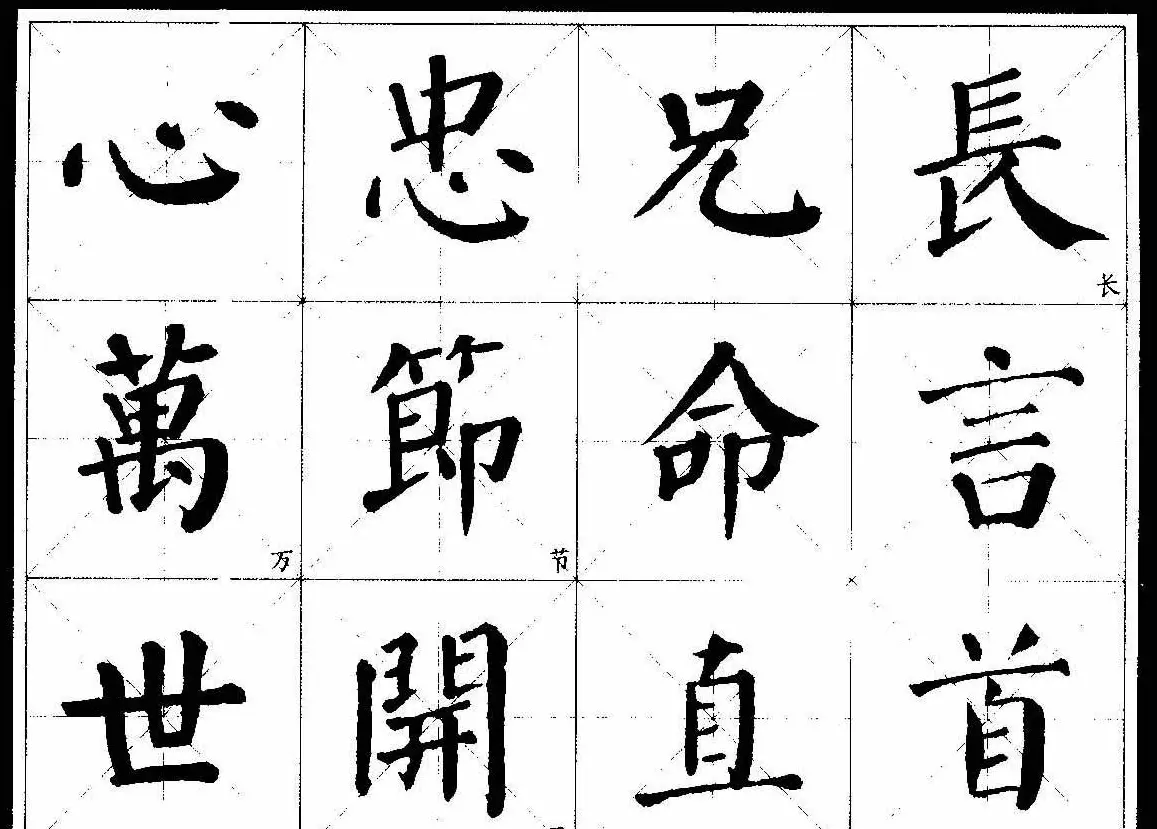 長长言首
兄命直
忠節节開
心萬万世